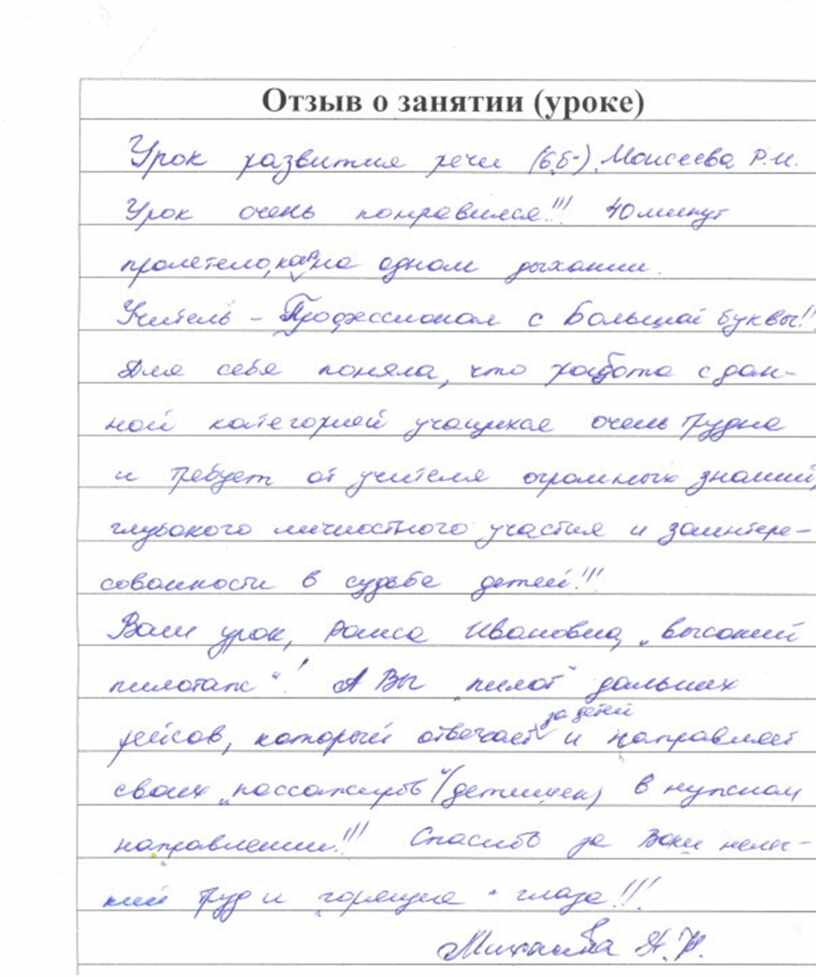 Отзыв о занятии (уроке)
Урок развития речи (6,5-) Моисеева Р.И.
Урок очень понравился!!! 40 минут
пролетело, как на одном дыхании.
Учитель – Профессионал с Большой буквы!!
Для себя поняла, что работа с дан-
ной категорией учащихся очень трудна
и требует от учителя огромных знаний,
глубокого личностного участия и заинтере-
сованности в судьбе детей!!!
Ваш урок, Раиса Ивановна, „высокий
пилотаж“! А Вы „пилот“ дальних
рейсов, который отвечает за детей и направляет
своих „пассажиров“ (детишек) в нужном
направлении!!! Спасибо за Ваш нелег-
кий труд и горящие глаза!!!
Михайлова